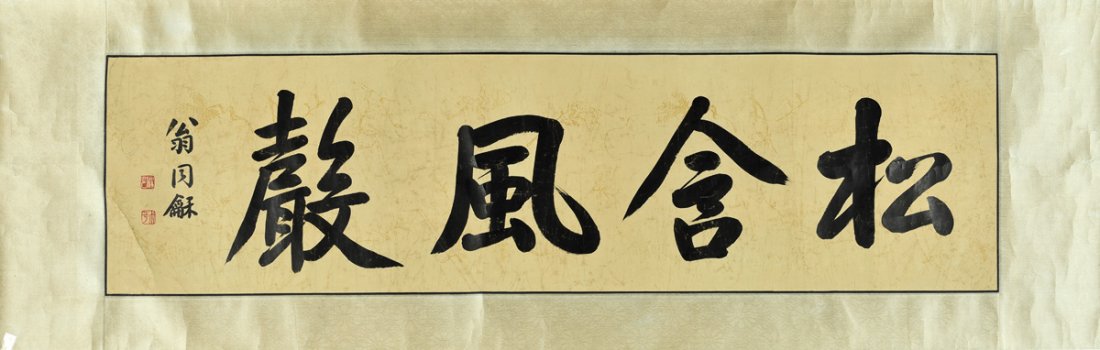 松含風聲
翁同龢